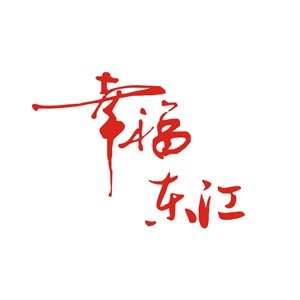 幸福
东江